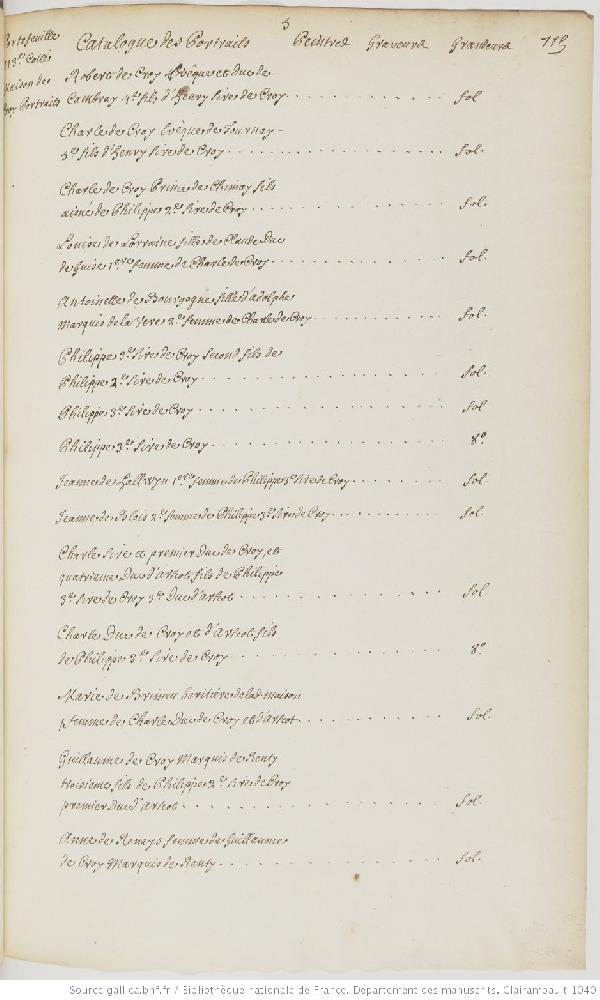 5
Portefeuille
118e Cotté
Maison de
Croy Portraits
Catalogue des Portraits Peintres Graveurs Grandeurs 115
Robert de Croy Evêque et Duc de
Cambray 4e fils d'Henry Sire de Croy fol
Charle de Croy Evêque de Tournay
5e fils d'Henry Sire de Croy fol.
Charle de Croy Prince de Chimay fils
aimé de Philippe 2e Sire de Croy fol.
Louise de Lorraine fille de Claude Duc
de Guise 1ere femme de Charle de Croy fol.
Antoinette de Bourgogne fille d'adolphe
Marquis de la Vere 2e femme de Charle de Croy fol.
Philippe 3e Sire de Croy second fils de
Philippe 2e Sire de Croy fol.
Philippe 3e Sire de Croy fol
Philippe 3e Sire de Croy 8o
Jeanne de Hallwyn 1ere femme de Philippe 3e Sire de Croy fol.
Jeanne de Blois 2e femme de Philippe 3e Sire de Croy fol.
Charle Sire et premier Duc de Croy, et
quatrieme Duc d'Arscot, fils de Philippe
3e Sire de Croy 3e Duc d'Arscot fol.
Charle Duc de Croy et d'Arscot, fils
de Philippe 3e Sire de Croy 8o
Marie de Brimeu heritiere de lad. maison
femme de Charle Duc de Croy et d'Arscot fol.
Guillaume de Croy Marquis de Renty
troisieme fils de Philippe 2e Sire de Croy
premier Duc d'Arscot fol.
Anne de Renays femme de Guillaume
de Croy Marquis de Renty fol.
Source gallica.bnf.fr / Bibliothèque nationale de France. Département des manuscrits. Clairambault 1040